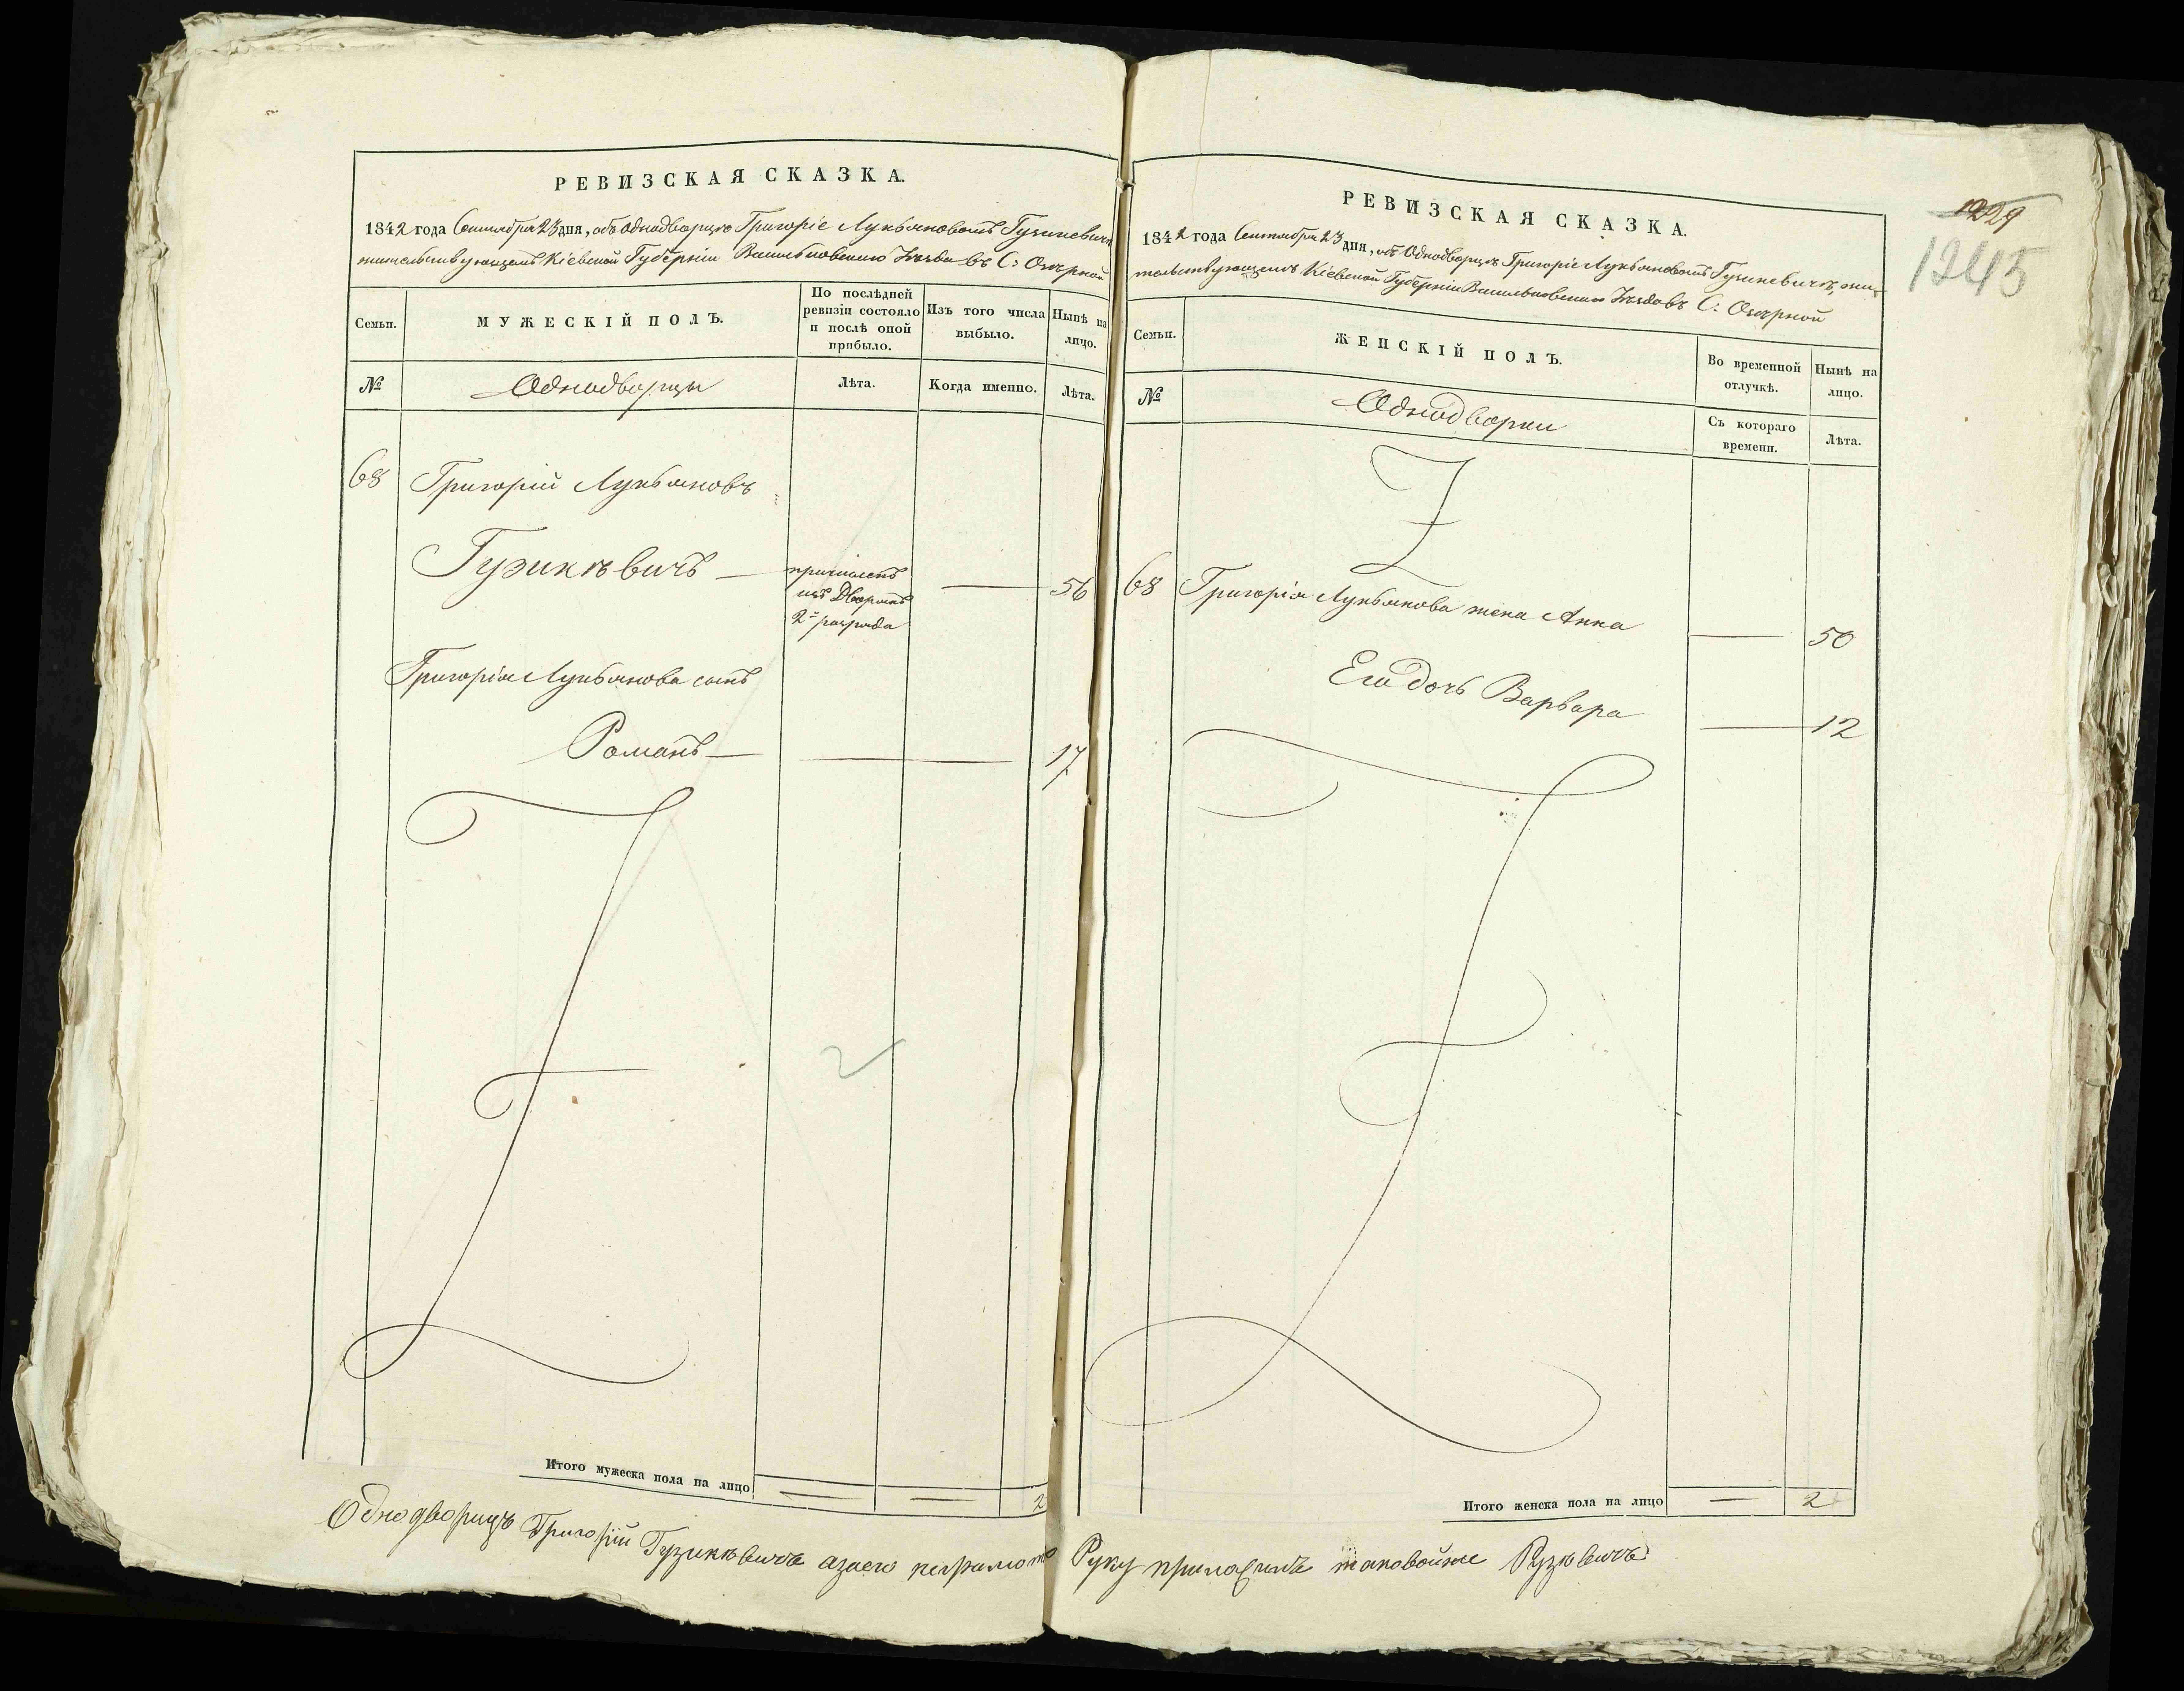 РЕВИЗСКАЯ СКАЗКА.
1842 года Сентября 23 дня, объ Однодворцѣ Григоріе Лукьяновомъ Гузикевичѣ
жительствующемъ Кіевской Губерніи Васильковскаго Уѣзда въ С: Озѣрной
Семьи.
МУЖЕСКІЙ ПОЛЪ.
По послѣдней ревизіи состояло и послѣ оной прибыло.
Изъ того числа выбыло.
Нынѣ на лицо.
№
Однодворцы
Лѣта.
Когда именно.
Лѣта.
68
Григорій Лукьяновъ
Гузикѣвичъ —
причисленъ
изъ Дворянъ
2го разряда
56
Григорія Лукьянова сынъ
Романъ —
17
2
Итого мужеска пола на лицо
2
Однодворицъ Григорій Гузикѣвичъ азаего неграмото
РЕВИЗСКАЯ СКАЗКА.
1229
1245
1842 года Сентября 23 дня, объ Однодворцѣ Григоріе Лукьяновомъ Гузикевичѣ, жи-
тельствующемъ Кіевской Губерніи Васильковскаго Уѣзда въ С: Озѣрной
Семьи.
ЖЕНСКІЙ ПОЛЪ.
Во временной отлучкѣ.
Нынѣ на лицо.
№
Однодворки
Съ котораго времени.
Лѣта.
68
Григорія Лукьянова жена Анна
50
Его дочь Варвара
12
Итого женска пола на лицо
2
Руку приложилъ таковойже